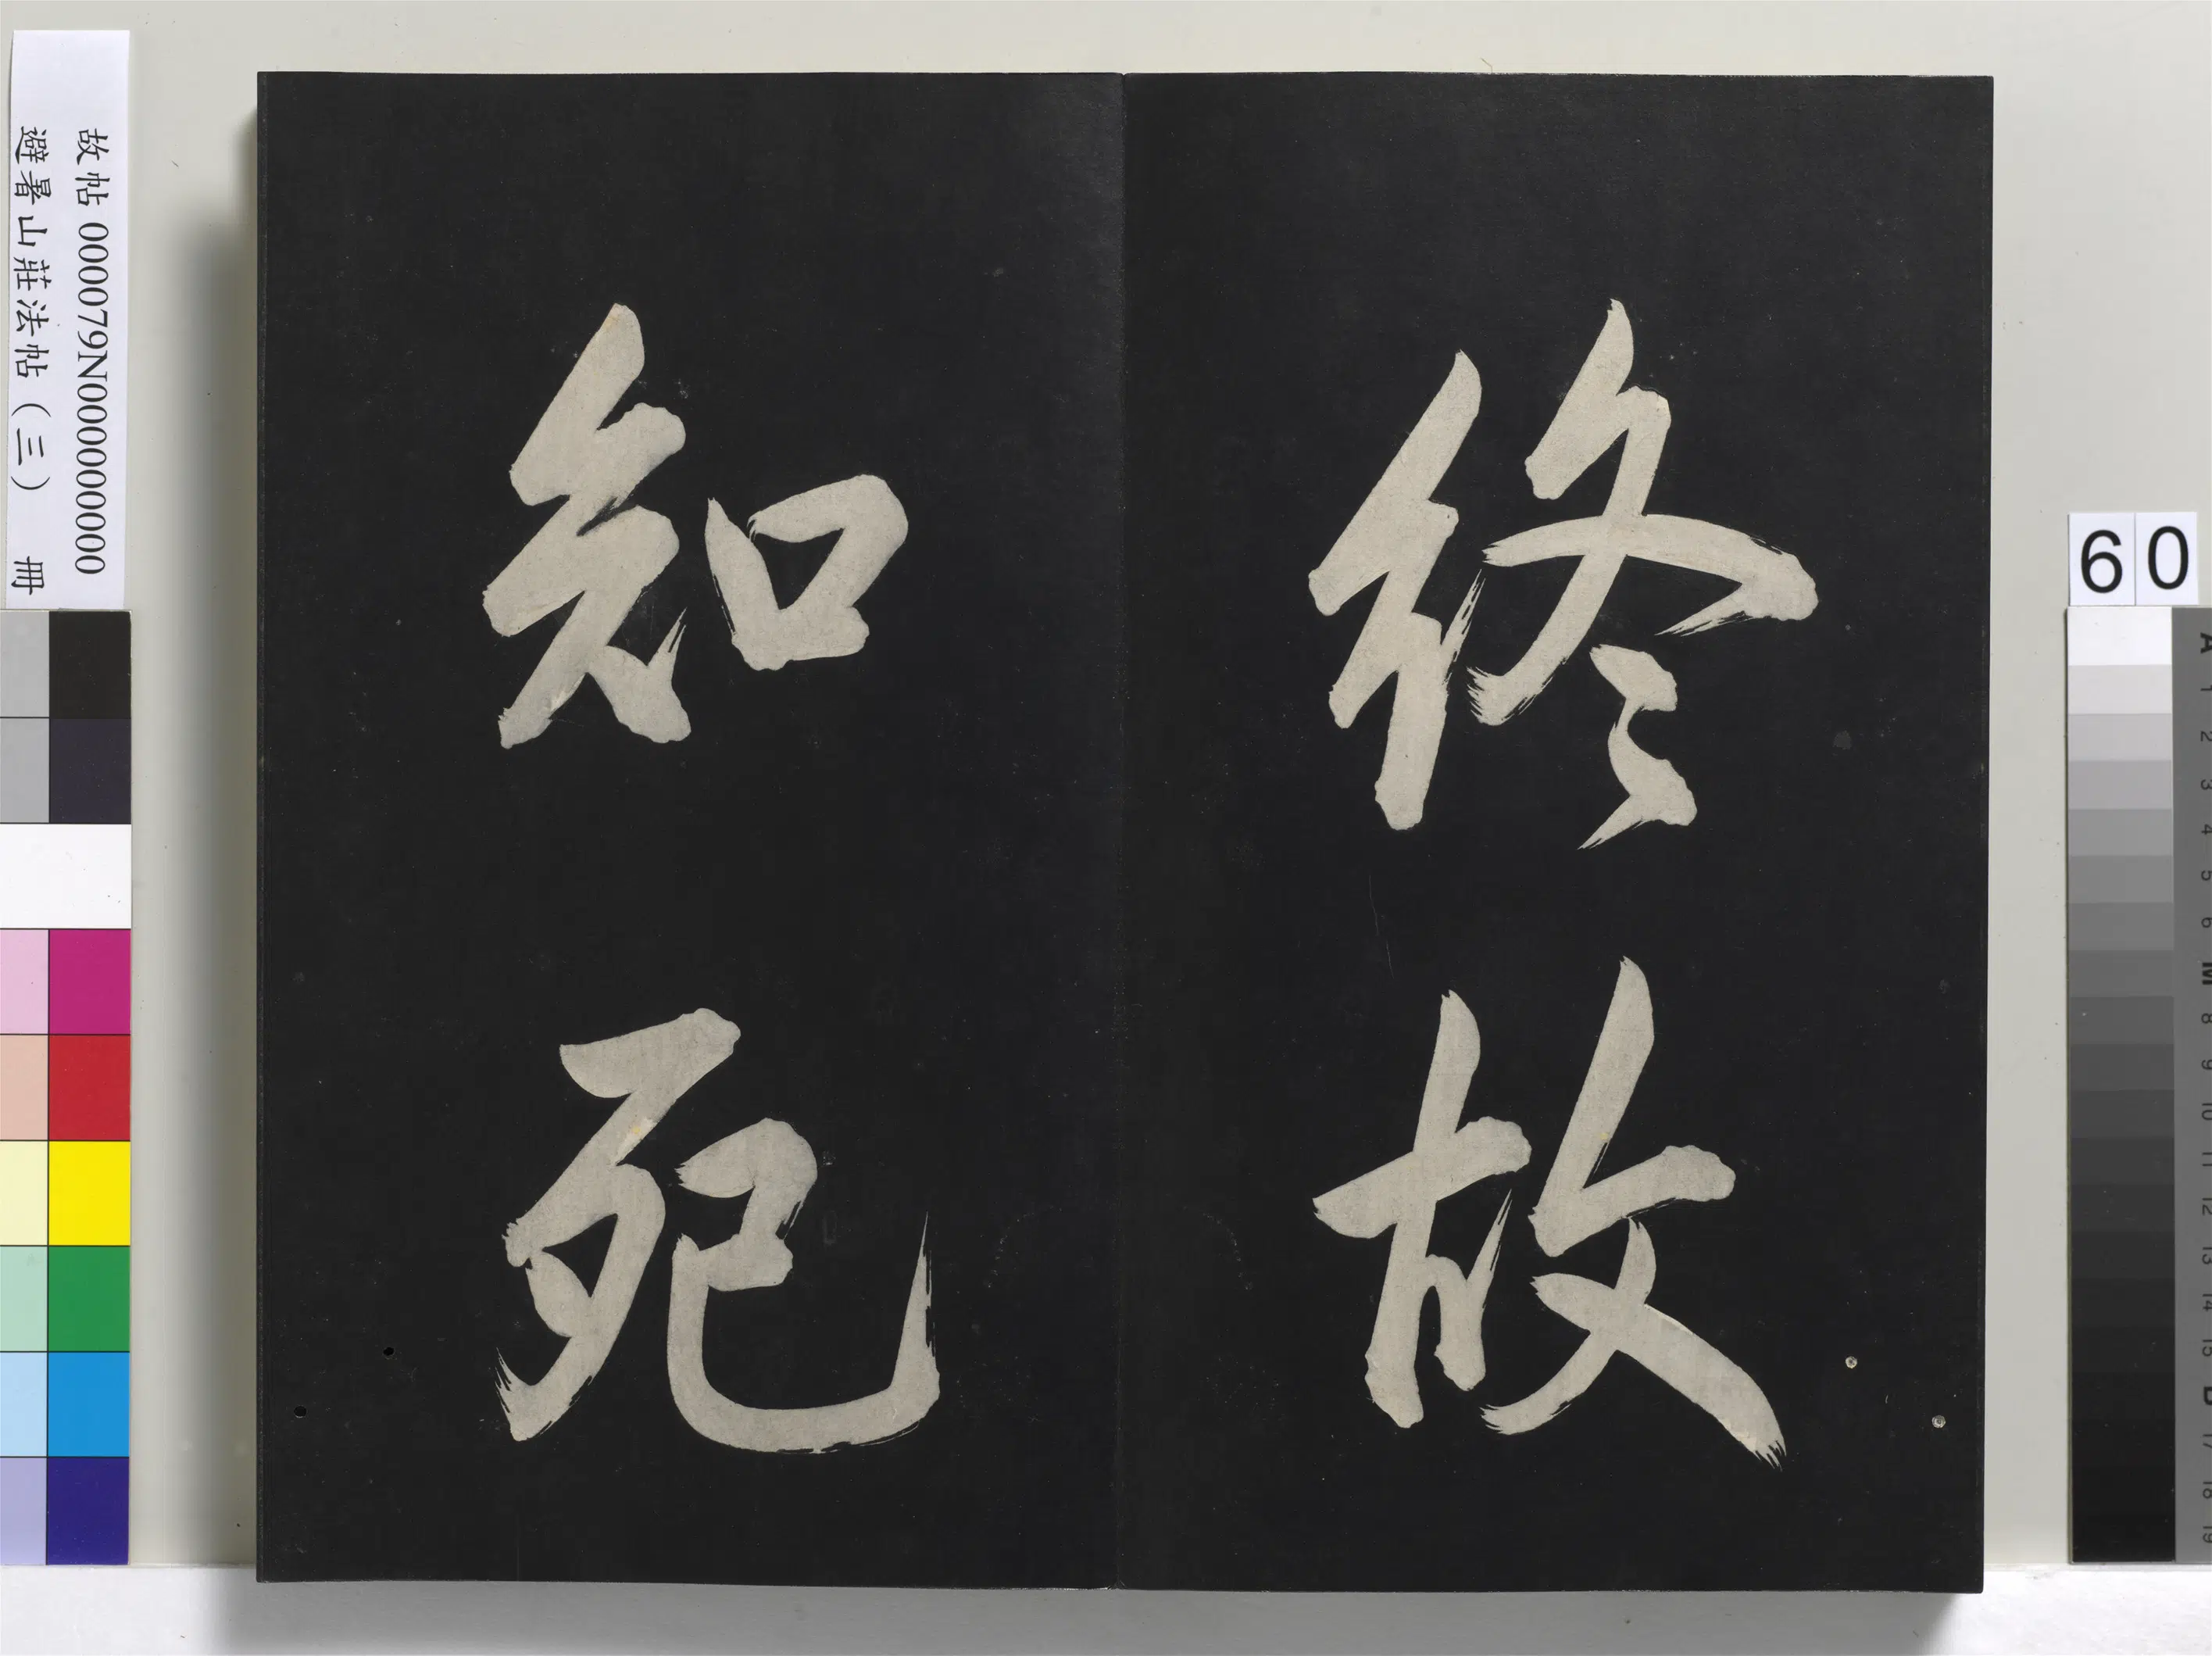 終故
知死
故帖 000079N000000000
避暑山莊法帖(三) 冊
60
A
1
2
3
4
5
6
M
8
9
10
11
12
13
14
15
B
17
18
19